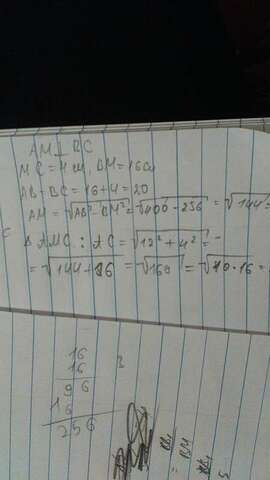 AM⊥BC
MC=4см, BM=16см
AB+BC=16+4=20
AM=√AB²-BM²=√400-256=√144=
C
△AMC: AC=√12²+4²=
=√144+16=√160=√10·16=
16
16
96
16
256